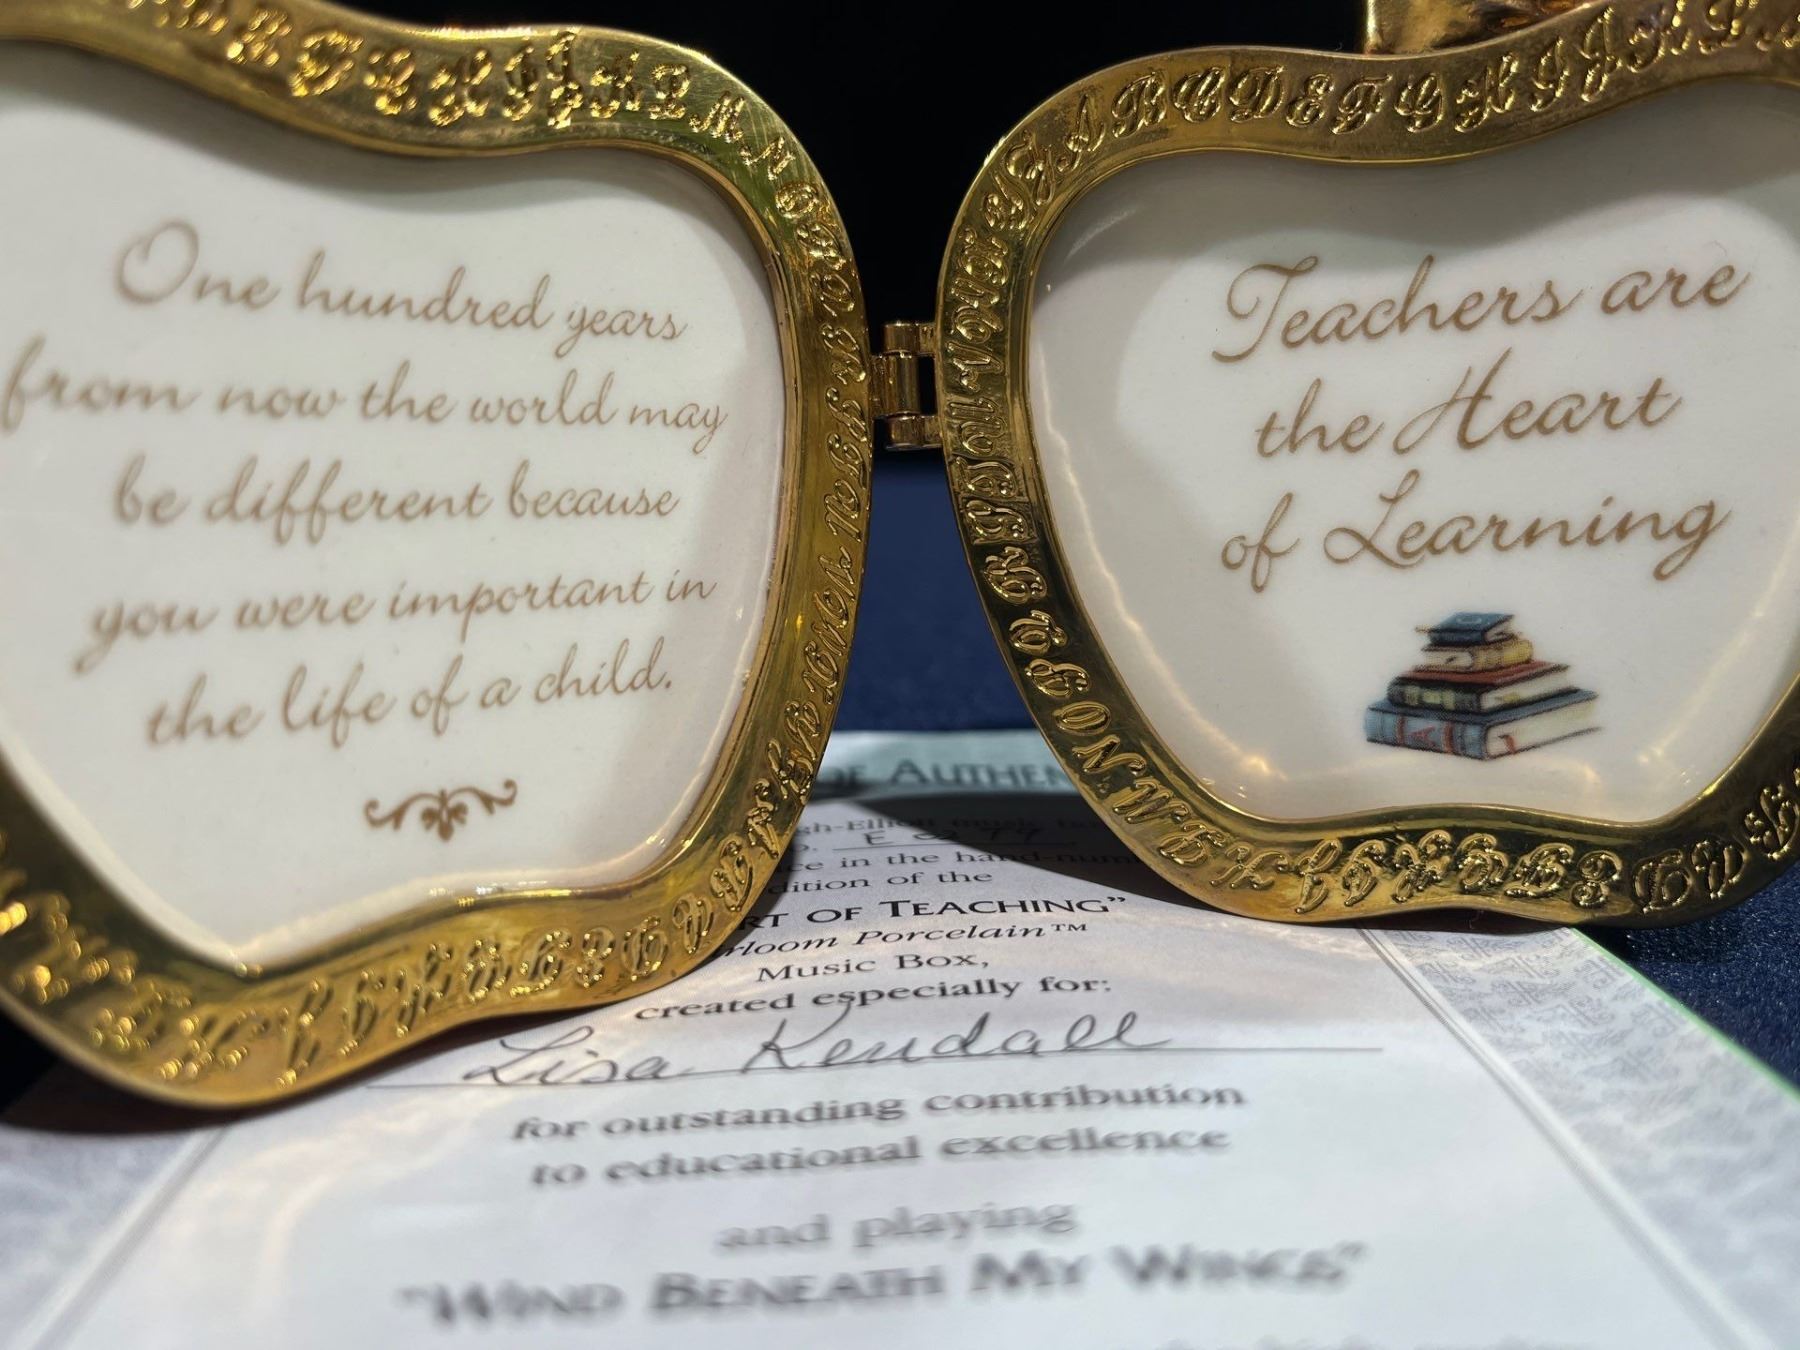 One hundred years
from now the world may
be different because
you were important in
the life of a child.
Teachers are
the Heart
of Learning
A B C D E F G H I J K L
OF AUTHEN
sh-Elliott music
ce in the hand-num
dition of the
RT OF TEACHING"
rloom Porcelain™
Music Box,
created especially for:
Lisa Kendall
for outstanding contribution
to educational excellence
and playing
"WIND BENEATH MY WINGS"